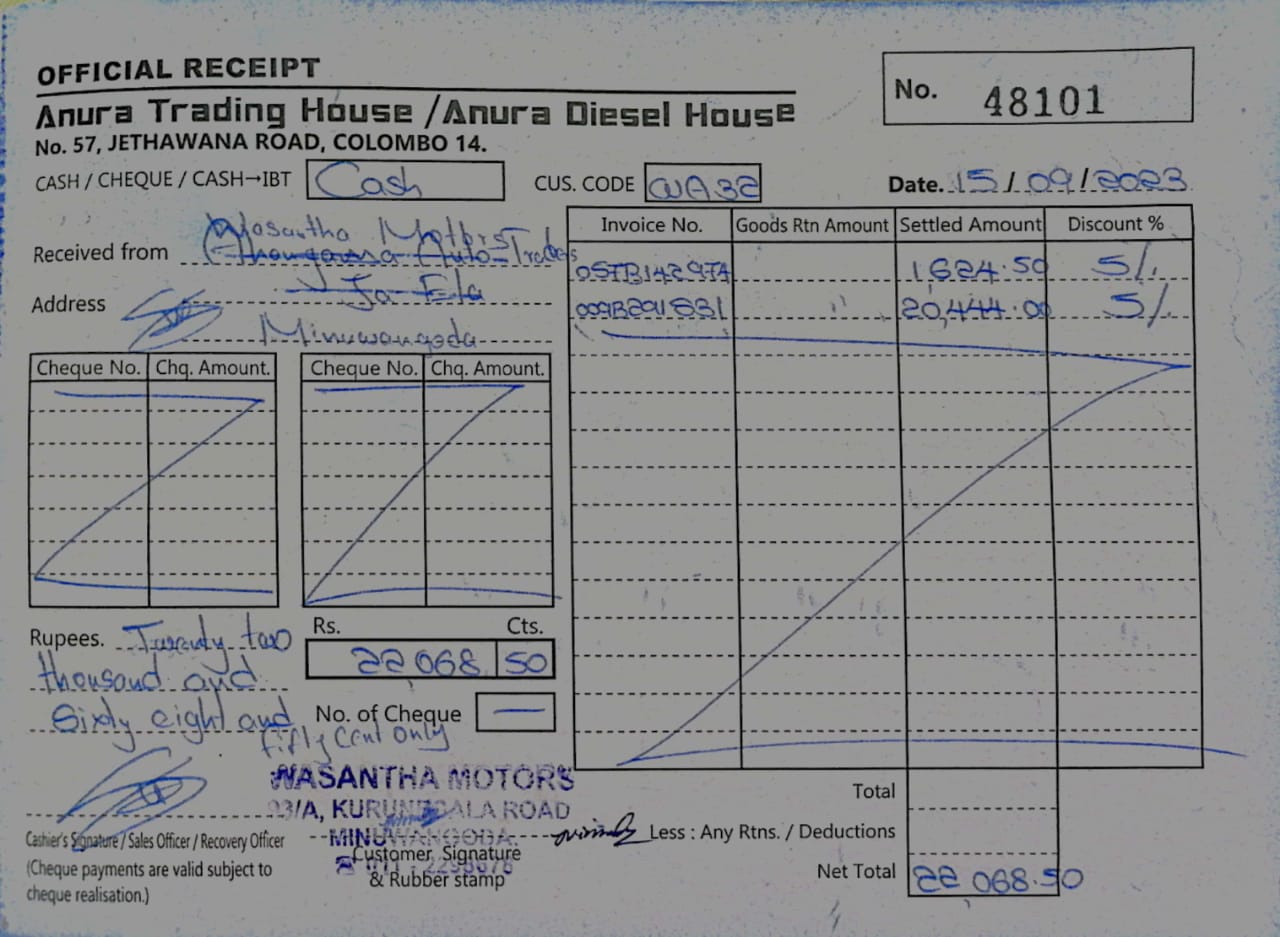 OFFICIAL RECEIPT
Anura Trading House / Anura Diesel House
No. 57, JETHAWANA ROAD, COLOMBO 14.
No. 48101
CASH / CHEQUE / CASH→IBT Cash
CUS. CODE WA32
Date. 15/09/2023
Received from Wasantha Motors
Auto Traders
Ja-Ela
Address
Minuwangoda
Invoice No. Goods Rtn Amount Settled Amount Discount %
1624.50 5%
20,444.00 5%
Cheque No. Chq. Amount. Cheque No. Chq. Amount.
Rupees. Twenty two
thousand and
Sixty eight and
fifty Cent Only
Rs. Cts.
22,068 50
No. of Cheque —
WASANTHA MOTORS
93/A, KURUNEGALA ROAD
MINUWANGODA.
Cashier's Signature / Sales Officer / Recovery Officer
(Cheque payments are valid subject to
cheque realisation.)
Customer Signature
& Rubber stamp
Total
Less : Any Rtns. / Deductions
Net Total 22 068.50